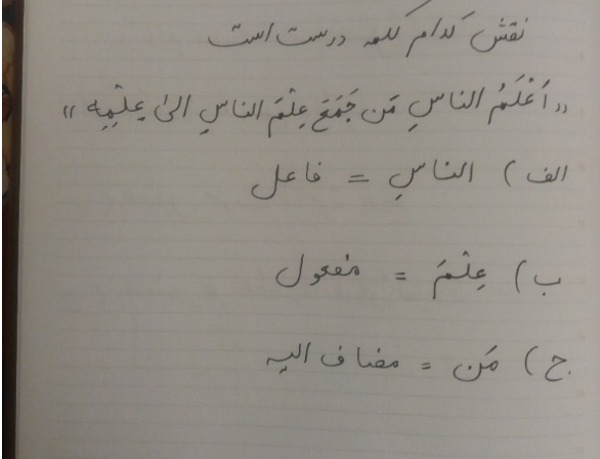 نقش کدام کلمه درست است
«اَعْلَمُ الناسِ مَن جَمَعَ عِلْمَ الناسِ الیٰ عِلْمِهِ»
الف) الناسِ = فاعل
ب) عِلْمَ = مفعول
ج) مَن = مضاف الیه